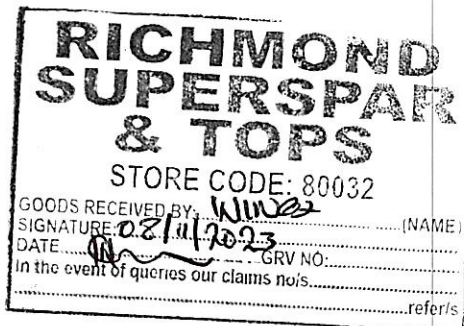 RICHMOND
SUPERSPAR
& TOPS
STORE CODE: 80032
GOODS RECEIVED BY: (NAME)
SIGNATURE: 08/11/2023
DATE GRV NO:
In the event of queries our claims no/s
refer/s